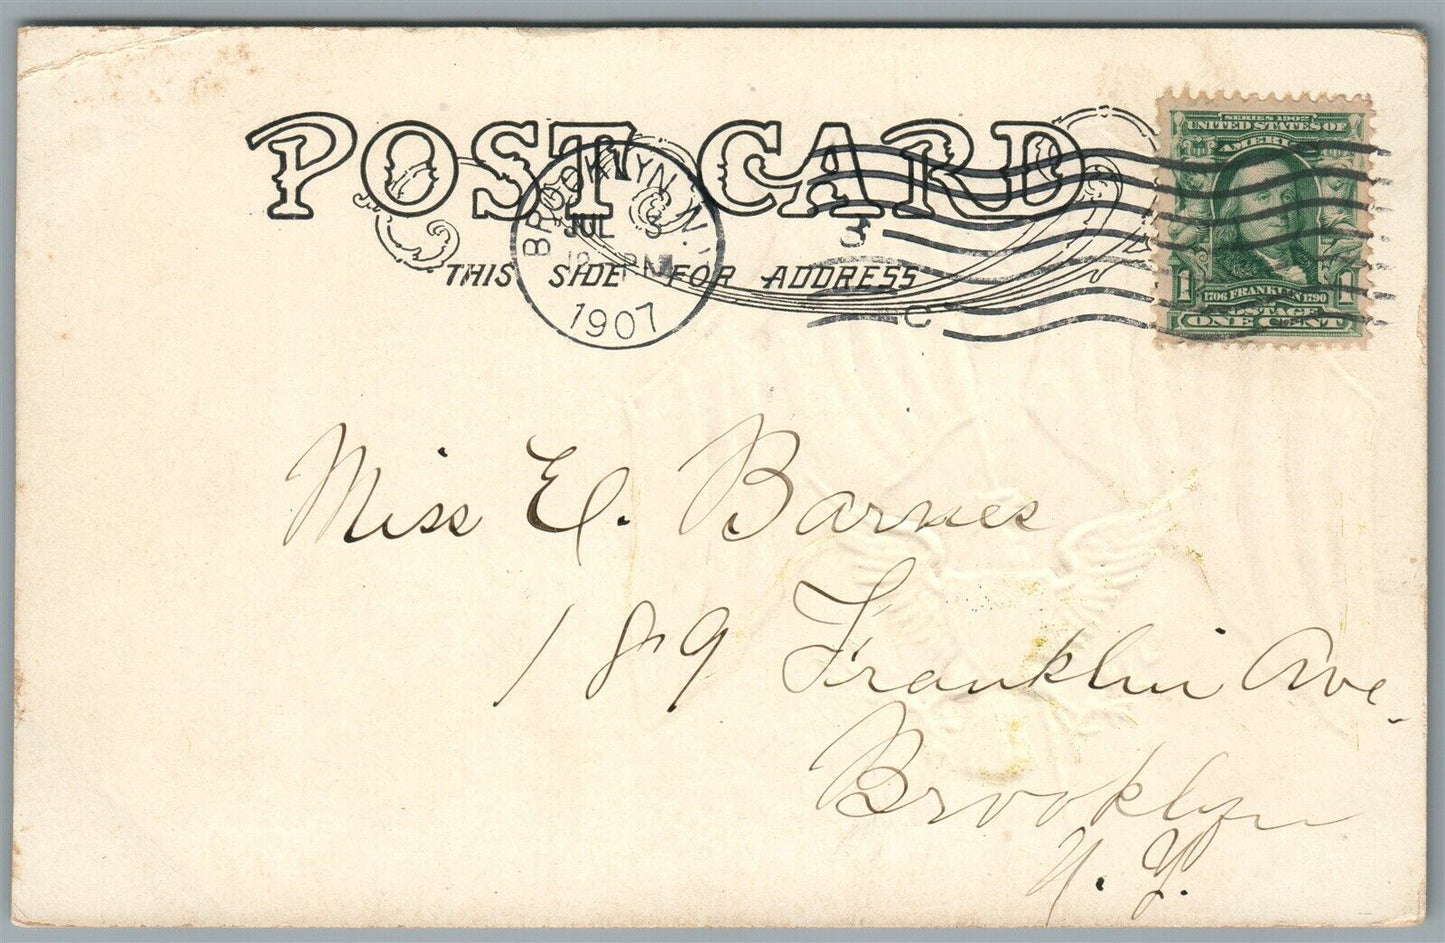 POST CARD
THIS SIDE FOR ADDRESS
BROOKLYN, N.Y.
JUL 3
12 PM
1907
3
C
SERIES 1902
UNITED STATES OF
AMERICA
1 1706 FRANKLIN 1790 1
POSTAGE
ONE CENT
Miss E. Barnes
189 Franklin Ave.
Brooklyn
N. Y.